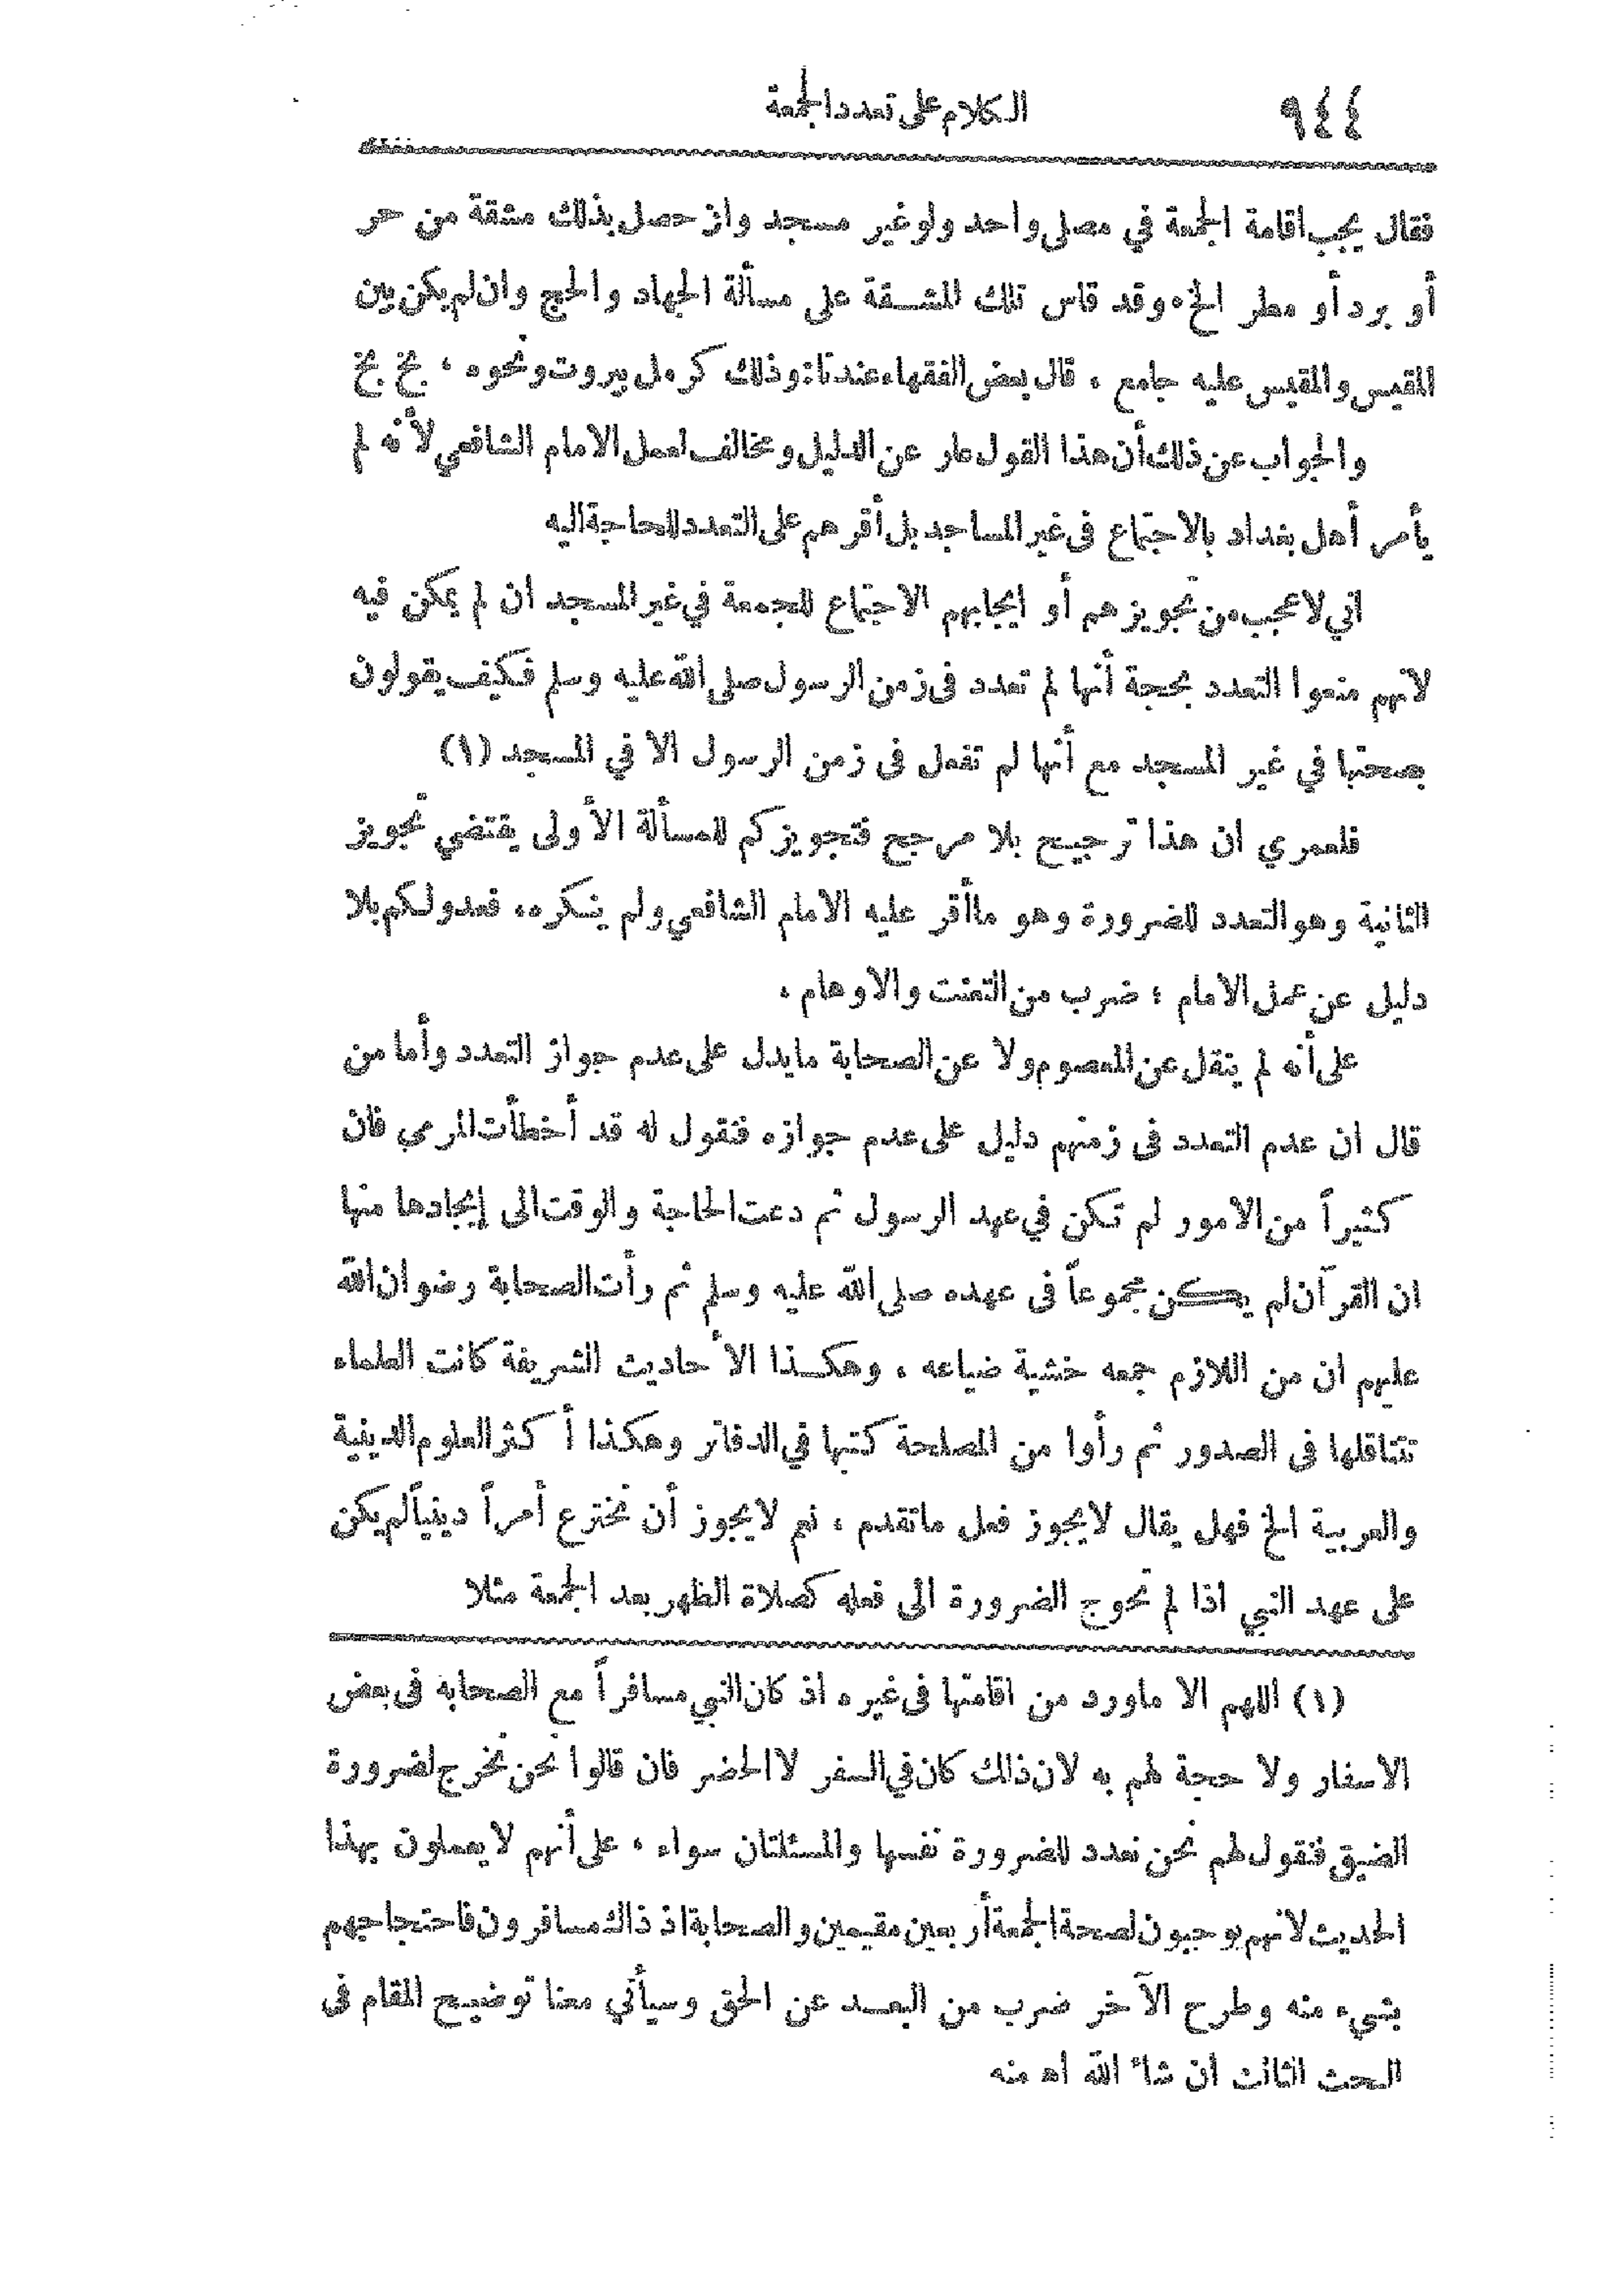 ٩٤٤
الكلام على تعدد الجمعة
فقال يجب اقامة الجمعة في مصلى واحد ولو غير مسجد وان حصل بذلك مشقة من حر
أو برد أو مطر الخ. وقد قاس تلك المشقة على مسألة الجهاد والحج وان لم يكن بين
المقيس والمقيس عليه جامع . قال بعض الفقهاء عندنا: وذلك كرمل بيروت ونحوه ، بخ بخ
والجواب عن ذلك أن هذا القول عار عن الدليل ومخالف لعمل الامام الشافعي لأنه لم
يأمر أهل بغداد بالاجتماع في غير المساجد بل أقرهم على التعدد للحاجة اليه
اني لاعجب من تجويزهم أو ايجابهم الاجتماع للجمعة في غير المسجد ان لم يمكن فيه
لانهم منعوا التعدد بحجة أنها لم تعدد في زمن الرسول صلى الله عليه وسلم فكيف يقولون
بصحتها في غير المسجد مع أنها لم تفعل في زمن الرسول الا في المسجد (١)
فلعمري ان هذا ترجيح بلا مرجح فتجويزكم للمسألة الأولى يقتضي تجويز
الثانية وهو التعدد للضرورة وهو ما أقر عليه الامام الشافعي ولم ينكره، فعدولكم بلا
دليل عن عمل الامام ؛ ضرب من التعنت والاوهام .
على أنه لم ينقل عن المعصوم ولا عن الصحابة ما يدل على عدم جواز التعدد وأما من
قال ان عدم التعدد في زمنهم دليل على عدم جوازه فنقول له قد أخطأت المرمى فان
كثيراً من الامور لم تكن في عهد الرسول ثم دعت الحاجة والوقت الى إيجادها منها
ان القرآن لم يكن مجموعاً في عهده صلى الله عليه وسلم ثم رأت الصحابة رضوان الله
عليهم ان من اللازم جمعه خشية ضياعه ، وهكذا الأحاديث الشريفة كانت العلماء
تتناقلها في الصدور ثم رأوا من المصلحة كتبها في الدفاتر وهكذا أكثر العلوم الدينية
والعربية الخ فهل يقال لا يجوز فعل ما تقدم ، نعم لا يجوز أن نخترع أمراً دينياً لم يكن
على عهد النبي اذا لم تحوج الضرورة الى فعله كصلاة الظهر بعد الجمعة مثلا
(١) اللهم الا ماورد من اقامتها في غيره اذ كان النبي مسافراً مع الصحابه في بعض
الاسفار ولا حجة لهم به لان ذلك كان في السفر لا الحضر فان قالوا نحن نخرج لضرورة
الضيق فنقول لهم نحن نعدد للضرورة نفسها والمسئلتان سواء ، على أنهم لا يعملون بهذا
الحديث لانهم يوجبون لصحة الجمعة أربعين مقيمين والصحابة اذ ذاك مسافرون فاحتجاجهم
بشيء منه وطرح الآخر ضرب من البعد عن الحق وسيأتي معنا توضيح المقام في
البحث الثالث ان شاء الله اه منه